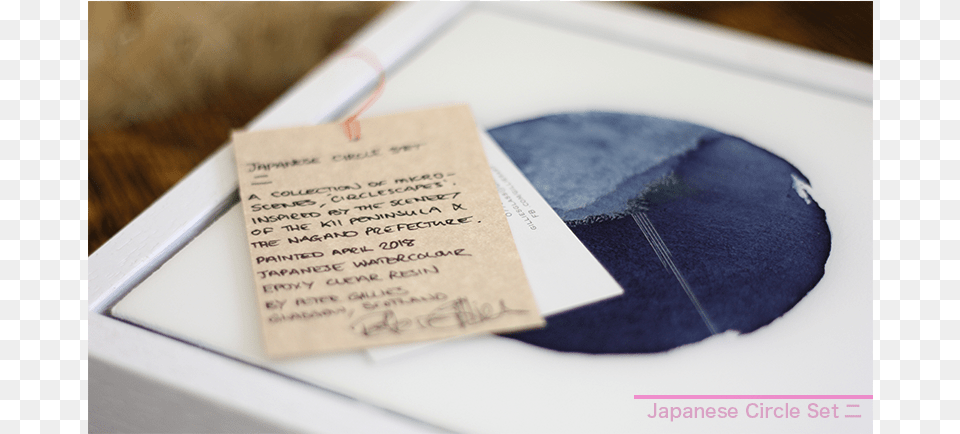 JAPANESE CIRCLE SET
二
A COLLECTION OF MICRO-
SCENES, 'CIRCLESCAPES'.
INSPIRED BY THE SCENERY
OF THE KII PENINSULA &
THE NAGANO PREFECTURE.
PAINTED APRIL 2018
JAPANESE WATERCOLOUR
EPOXY CLEAR RESIN
BY PETER GILLIES
GLASGOW, SCOTLAND
Japanese Circle Set 二